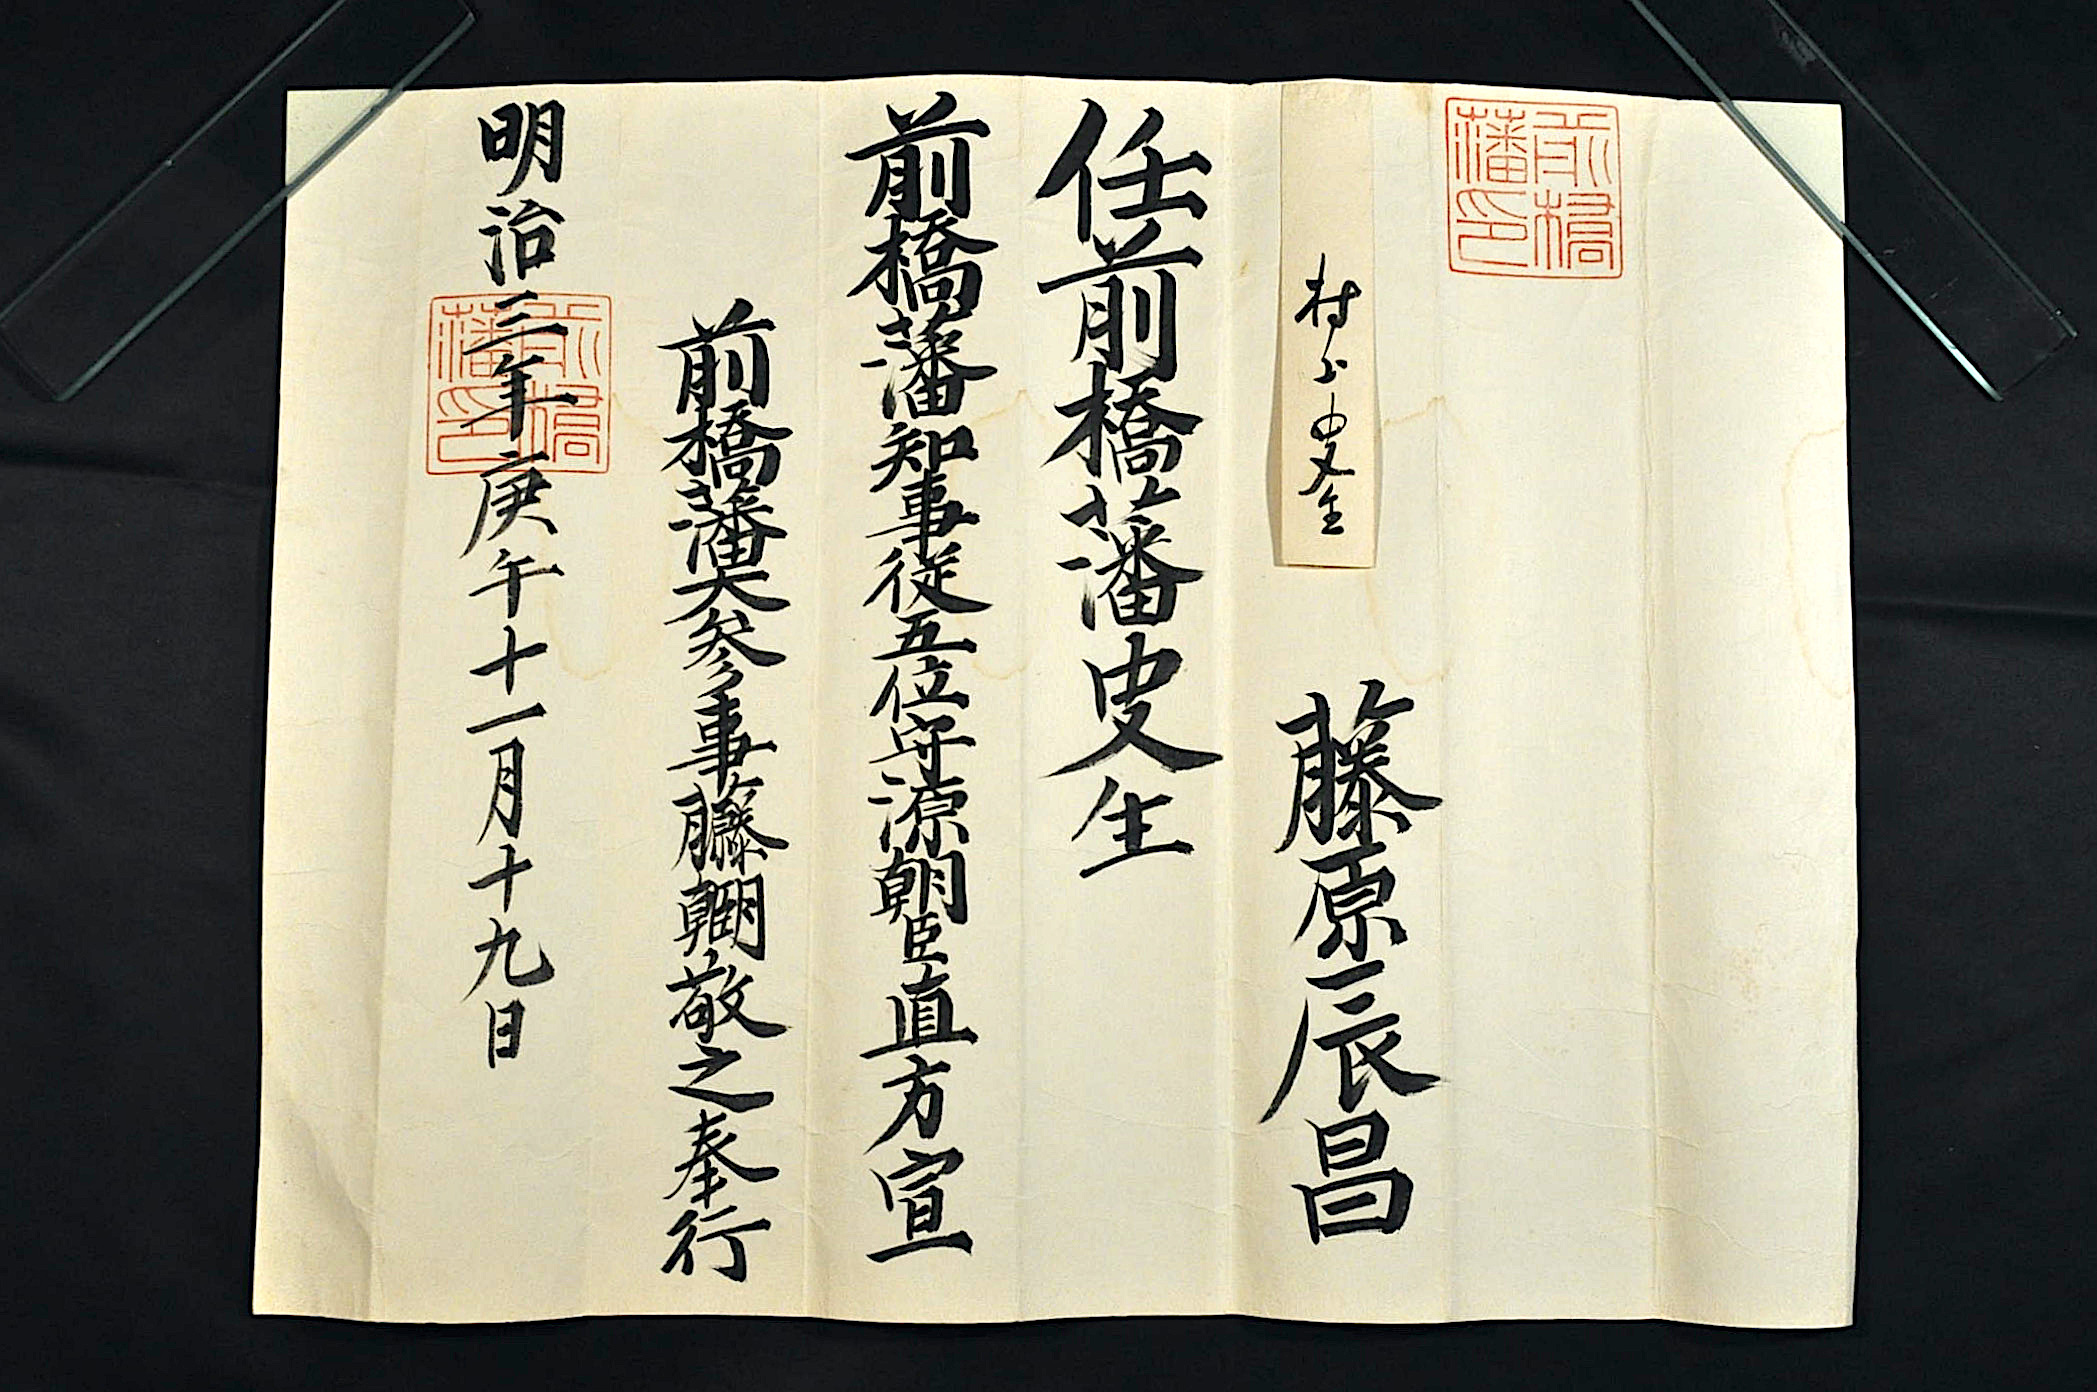 前橋藩印
村上史生
藤原辰昌
任前橋藩史生
前橋藩知事従五位守源朝臣直方宣
前橋藩大参事藤原朝臣敬之奉行
明治三年庚午十一月十九日
前橋藩印